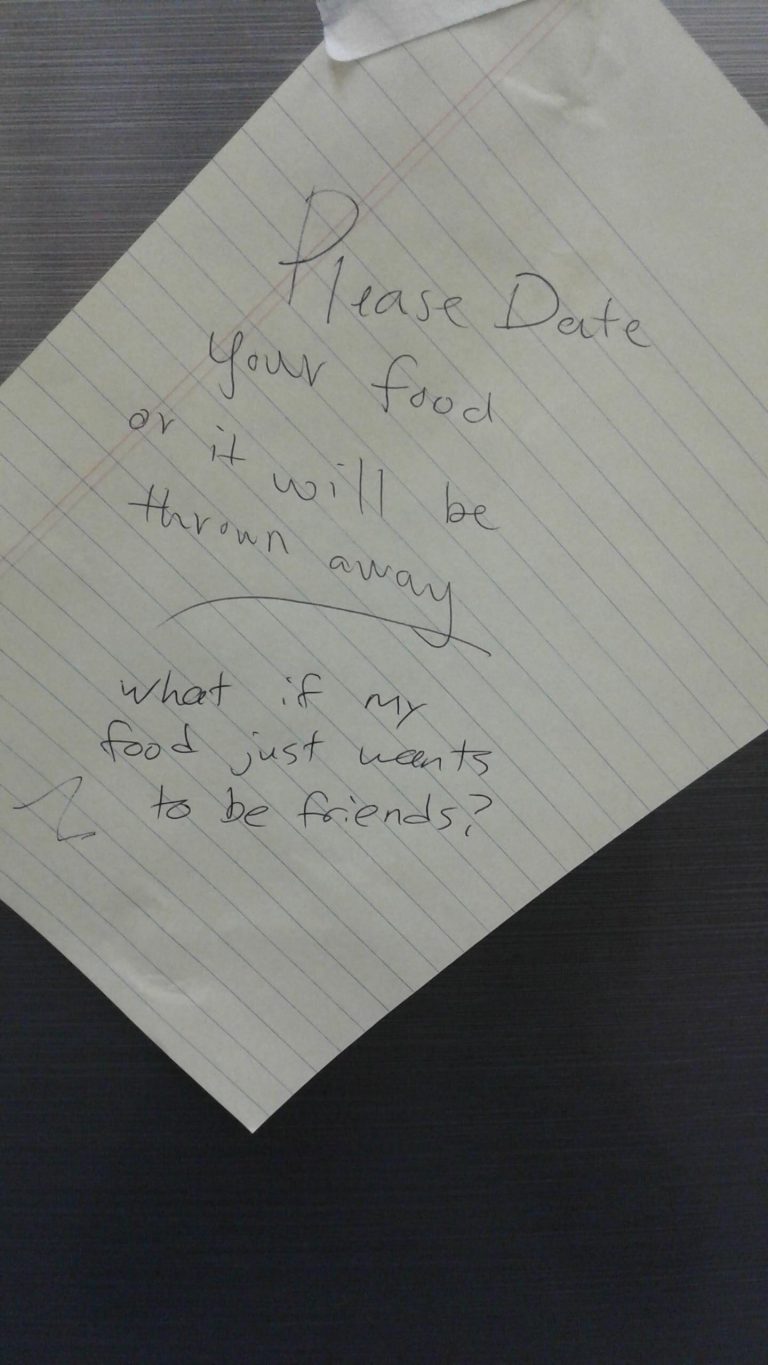 Please Date
your food
or it will be
thrown away
what if my
food just wants
to be friends?